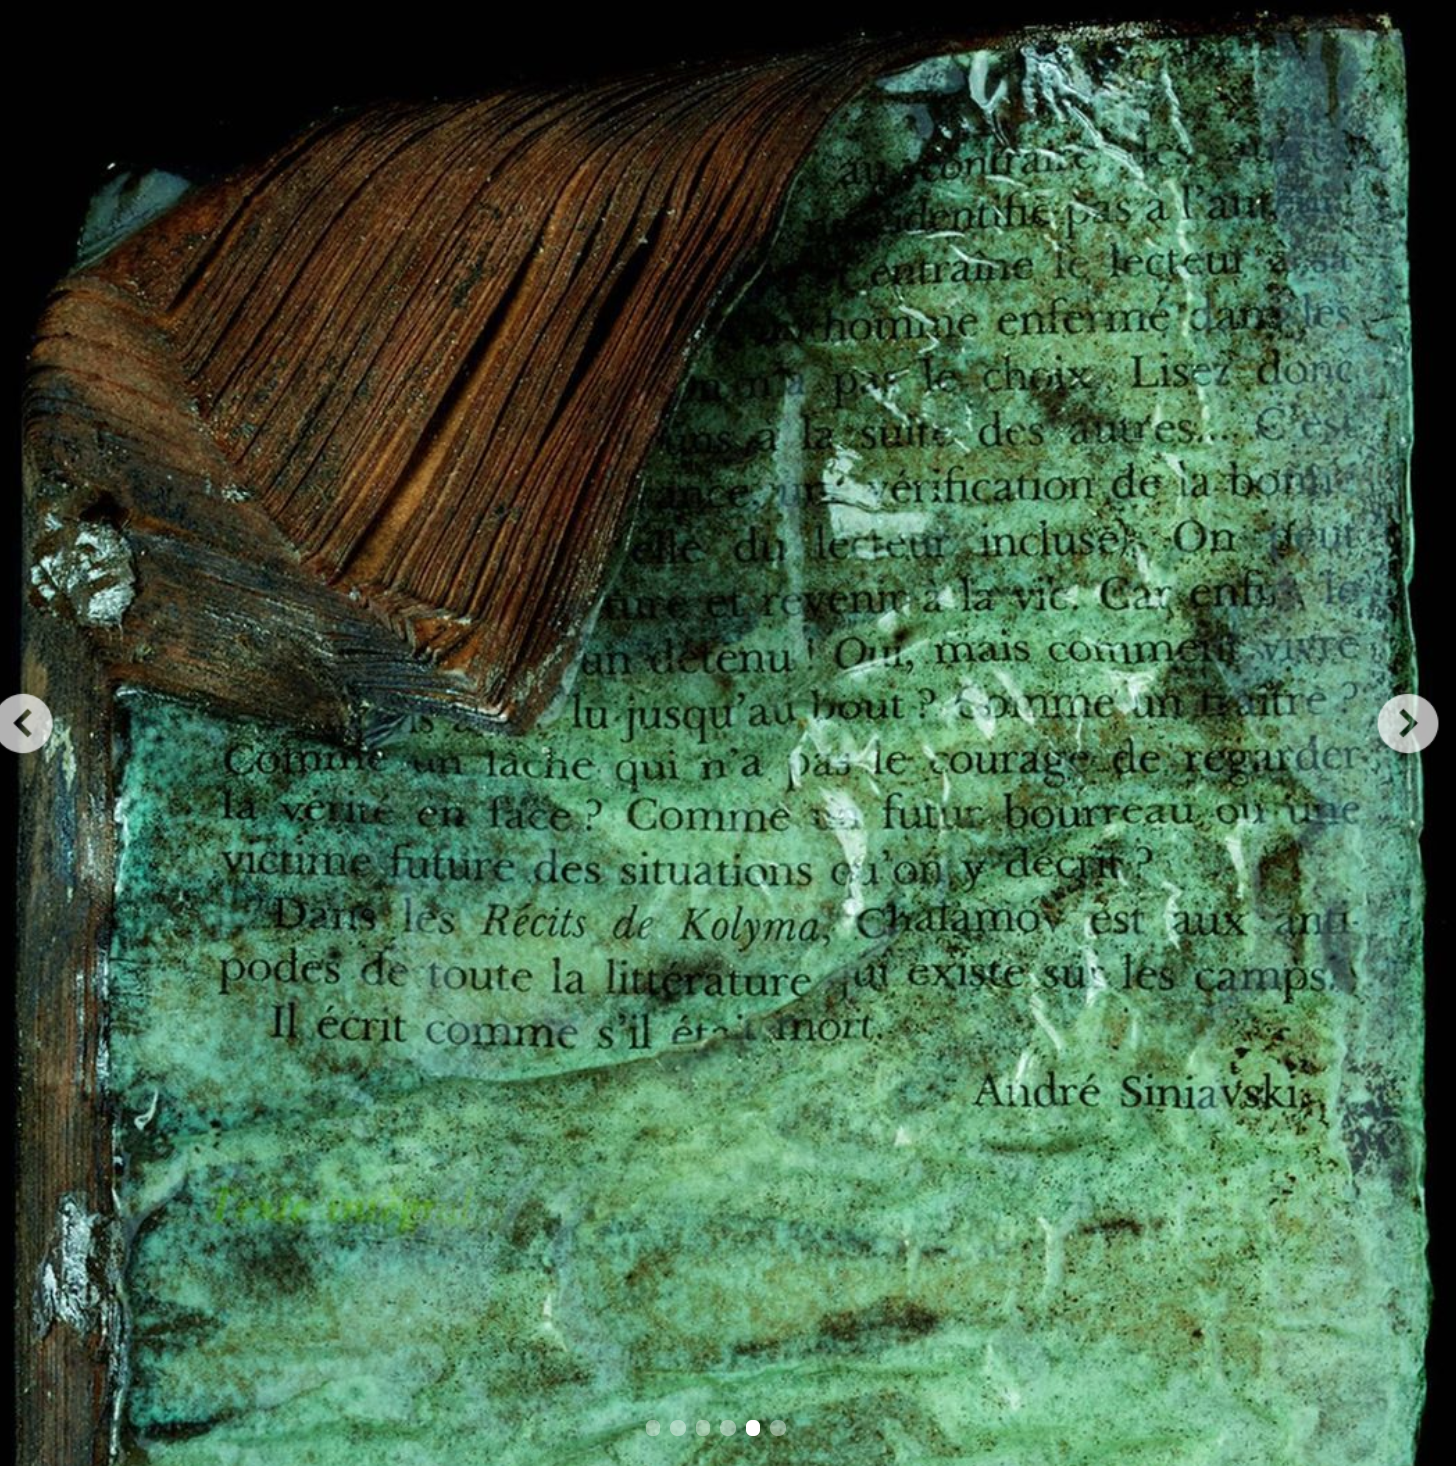 au contraire, les
identifie pas à l'auteur
entraîne le lecteur à sa
homme enfermé dans les
on n'a pas le choix. Lisez donc
uns à la suite des autres... C'est
une vérification de la bonne
elle du lecteur incluse). On peut
et revenir à la vie. Car enfin, le
un détenu ! Oui, mais comment vivre
lu jusqu'au bout ? Comme un traître ?
Comme un lâche qui n'a pas le courage de regarder
la vérité en face ? Comme un futur bourreau ou une
victime future des situations qu'on y décrit ?
Dans les Récits de Kolyma, Chalamov est aux anti-
podes de toute la littérature qui existe sur les camps.
Il écrit comme s'il était mort.
André Siniavski.
Texte intégral